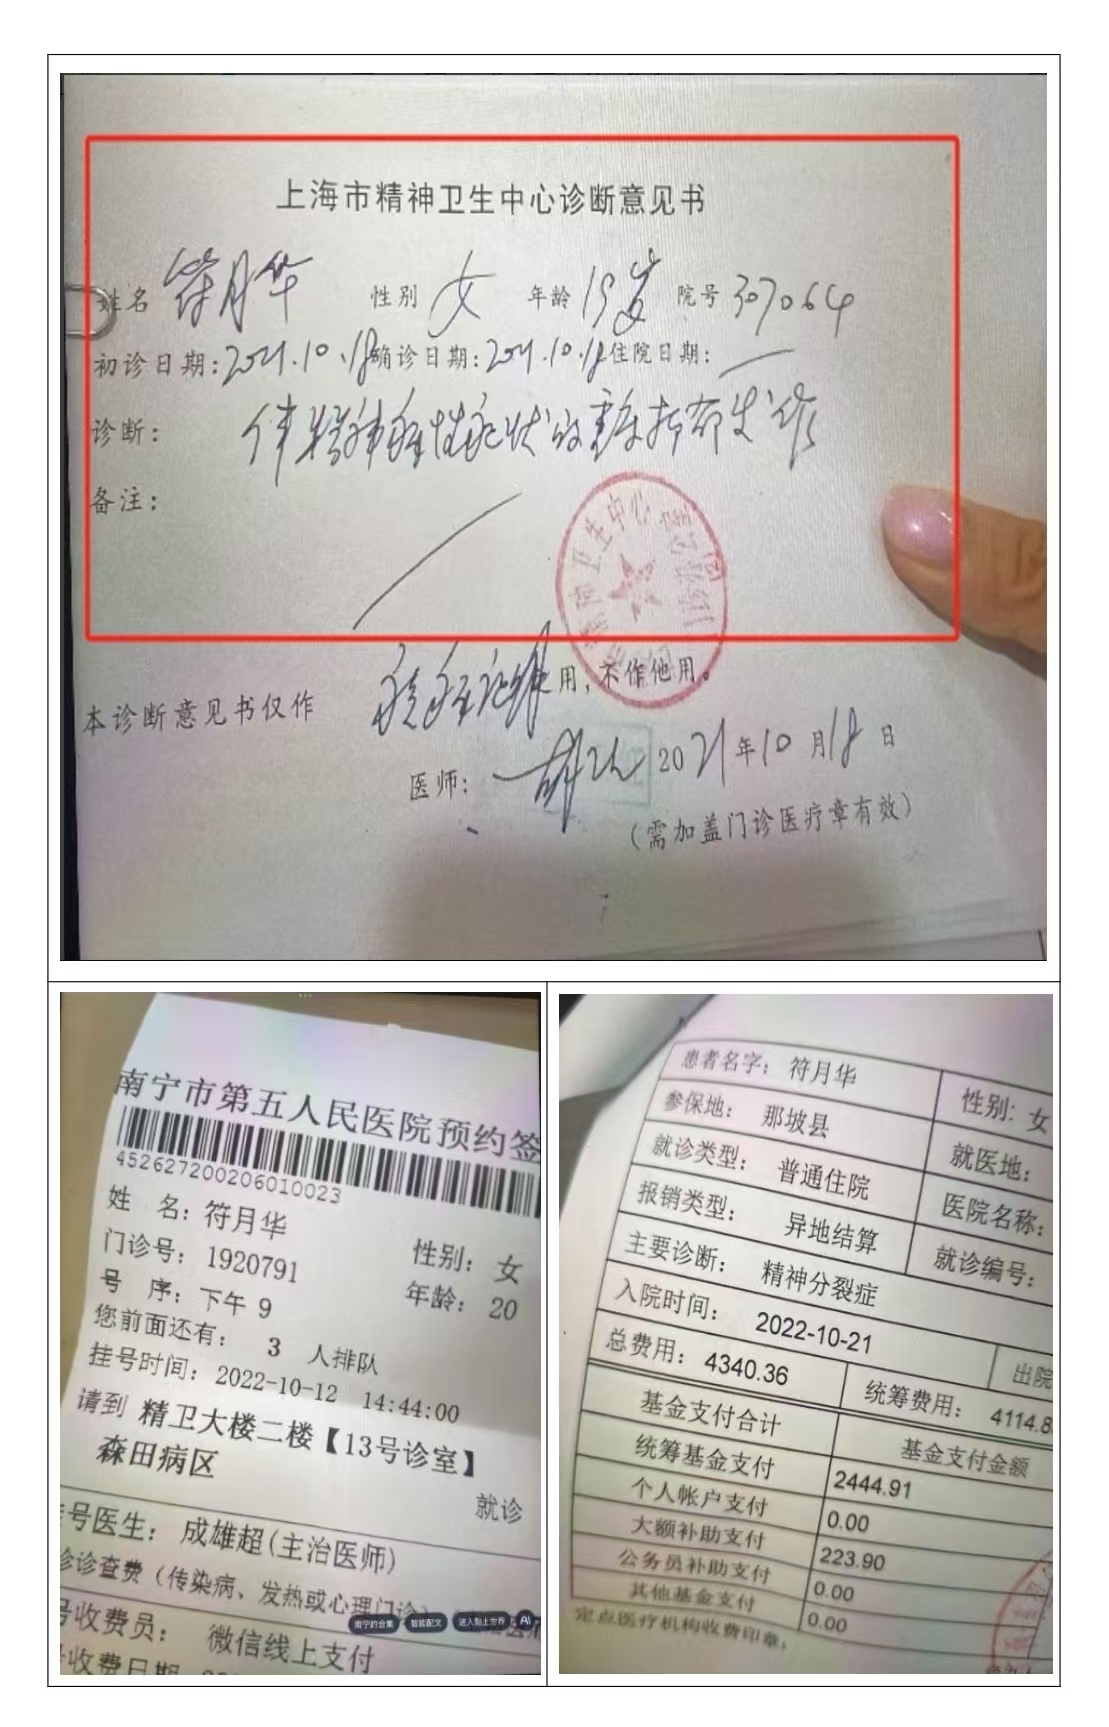 上海市精神卫生中心诊断意见书
姓名 符月华 性别 女 年龄 19岁 院号 307064
初诊日期:2021.10.18 确诊日期:2021.10.18 住院日期:
诊断: 伴精神病性症状的重度抑郁发作
备注:
本诊断意见书仅作 用,不作他用。
医师: 2021年10月18日
(需加盖门诊医疗章有效)
南宁市第五人民医院预约签
452627200206010023
姓 名: 符月华 性别: 女
门诊号: 1920791 年龄: 20
号 序: 下午 9
您前面还有: 3 人排队
挂号时间: 2022-10-12 14:44:00
请到 精卫大楼二楼【13号诊室】
森田病区
就诊
号医生: 成雄超(主治医师)
诊诊查费(传染病、发热或心理门诊)
号收费员: 微信线上支付
收费日期
南宁的合集 智能配文 进入黏土世界 AI
患者名字: 符月华 性别: 女
参保地: 那坡县 就医地:
就诊类型: 普通住院 医院名称:
报销类型: 异地结算 就诊编号:
主要诊断: 精神分裂症
入院时间: 2022-10-21 出院
总费用: 4340.36 统筹费用: 4114.8
基金支付合计 基金支付金额
统筹基金支付 2444.91
个人帐户支付 0.00
大额补助支付 223.90
公务员补助支付 0.00
其他基金支付 0.00
定点医疗机构收费印章: